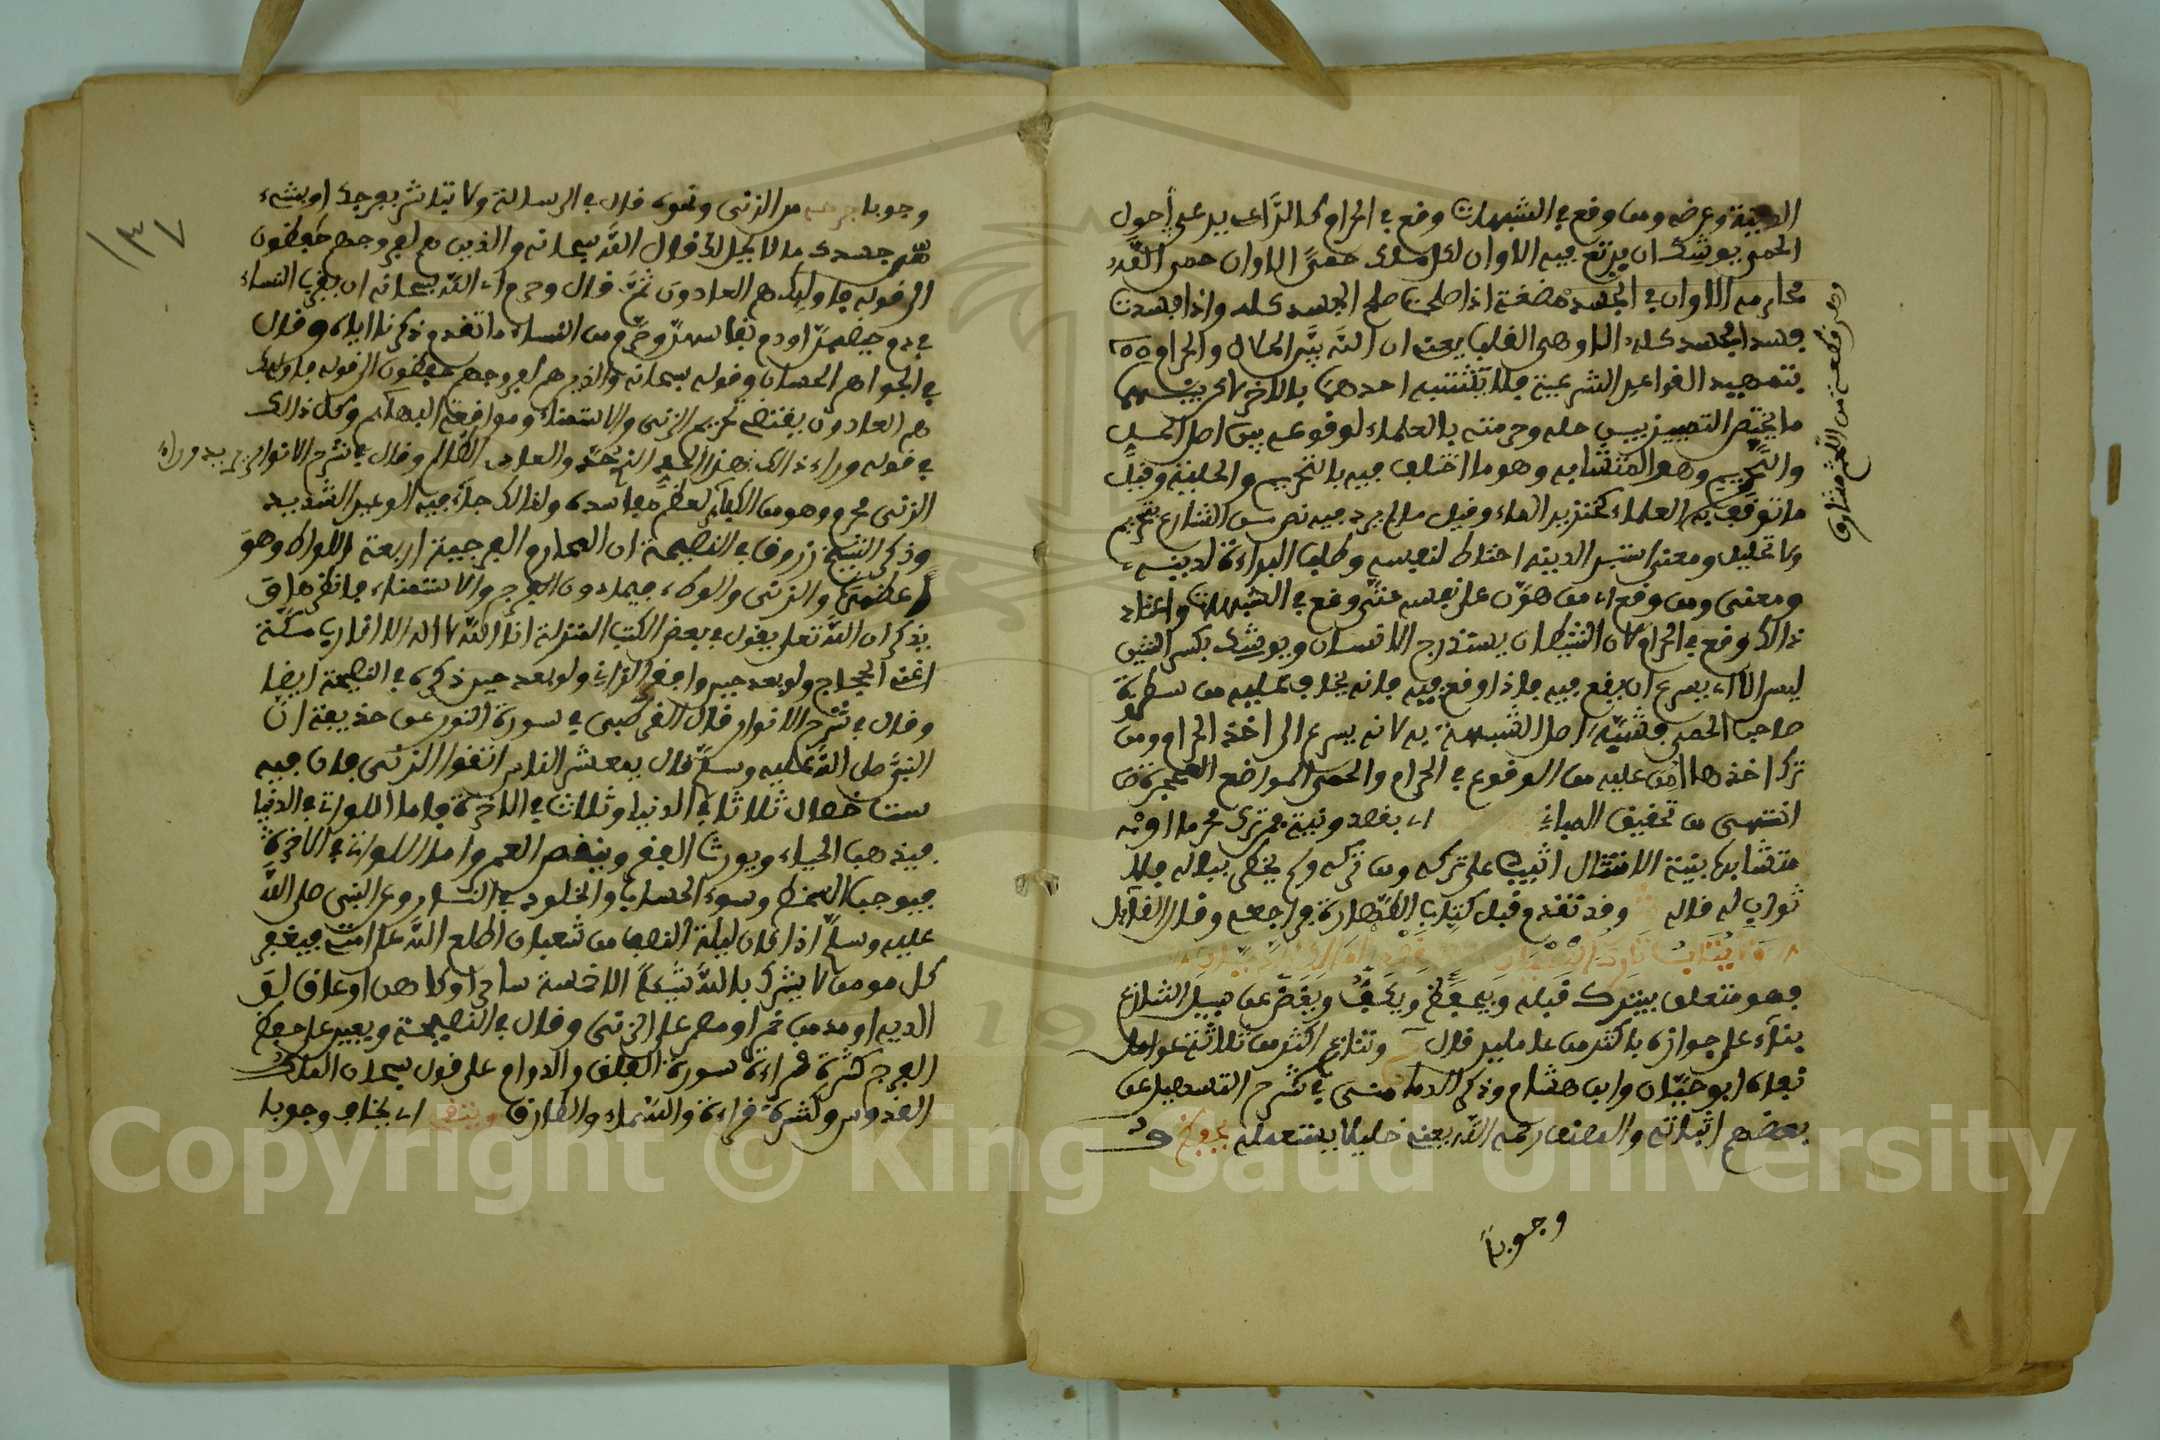 الدينه وعرضه ومن وقع في الشبهات وقع في الحرام كالراعي يرعى حول
الحمى يوشك ان يرتع فيه الا وان لكل ملك حمى الا وان حمى الله
محارمه الا وان في الجسد مضغة اذا صلحت صلح الجسد كله واذا فسدت
فسد الجسد كله الا وهي القلب يعني ان الله بين الحلال والحرام
بتمهيد القواعد الشرعية فلا يشتبه احدهما بالاخر
ما يختص التمييز بين حله وحرمته بالعلماء لوقوعه بين اصل
والتحريم وهو المتشابه وهو ما اختلف فيه بالتحريم والحلية وقيل
ما توقف به العلماء كخنزير الماء وقيل ما لم يرد فيه نص من الشارع بتحريم
ولا تحليل ومعنى استبرا لدينه احتاط لنفسه وطلب البراءة لدينه
ومعنى ومن وقع اي من هون على نفسه حتى وقع في الشبهات واعتاد
ذالك وقع في الحرام لان الشيطان يستدرج الانسان ويوشك بكسر الشين
ليسر اي يسرع ان يقع فيه فاذا وقع فيه فانه يخاف عليه من سطوة
صاحب الحمى فشبه اصل الشبهة به لانه يسرع الى اخذ الحرام ومن
ترك اخذها امن عليه من الوقوع في الحرام والحمى المواضع المحجرة
انتهى من تحقيق المباني اي بقصد ونية فمن ترك محرما او
متشابها بنية الامتثال اثيب على تركه ومن تركه ولم يخطر بباله فلا
ثواب له قاله وقد تقدم قبل كتاب الطهارة فراجعه وقال القائل
فهو متعلق بيترك قبله ويحفظ ويكف ويغض عن سبيل التنازع
بناء على جوازه باكثر من عاملين قال وتنازع اكثر من ثلاثة عوامل
نفاه ابو حيان وابن هشام وذكر الدماميني في شرح التسهيل عن
بعضهم اثباته والمصنف رحمه الله يعني خليلا يستعمله
وجوبا
وهي قطعة من اللحم
وجوبا فرجه من الزنى ونحوه قال في الرسالة ولا تباشر بفرجك او بشيء
من جسدك ما لا يحل لك قال الله سبحانه والذين هم لفروجهم حافظون
الى قوله فاولئك هم العادون ثم قال وحرم الله سبحانه ان يقرب النساء
في دم حيضهن او دم نفاسهن وحرم من النساء ما تقدم ذكرنا اياه وقال
في الجواهر الحسان وقوله سبحانه والذين هم لفروجهم حافظون الى قوله فاولئك
هم العادون يقتضي تحريم الزنى والاستمناء ومواقعة البهائم وكل ذالك
في قوله وراء ذالك هذا الحد الذي حد والعادي الظالم وقال في شرح الانوار
الزنى محرم وهو من الكبائر لعظم مفاسده ولذالك جاء فيه الوعيد الشديد
وذكر الشيخ زروق في النصيحة ان المحارم الفرجية اربعة اللواط وهو
اعظمها والزنى والوطء فيما دون الفرج والاستمناء فانظرها
يذكر ان الله تعالى يقول في بعض الكتب المنزلة انا الله لا اله الا انا رب مكة
اغني الحجاج ولو بعد حين وافقر الزاني ولو بعد حين ذكره في النصيحة ايضا
وقال في شرح الانوار قال القرطبي في سورة النور عن حذيفة ان
النبي صلى الله عليه وسلم قال يمعشر الناس اتقوا الزنى فان فيه
ست خصال ثلاثا في الدنيا وثلاث في الاخرة فاما اللواتي في الدنيا
فيذهب الحياء ويورث الفقر وينقص العمر واما اللواتي في الاخرة
فيوجب السخط وسوء الحساب والخلود في النار وعن النبي صلى الله
عليه وسلم اذا كان ليلة النصف من شعبان اطلع الله على امتي فيغفر
كل مومن لا يشرك بالله شيئا الا خمسة ساحرا وكاهن او عاق
الديه او مدمن خمر او مصر على الزنى وقال في النصيحة ويعين على حفظ
الفرج كثرة قراءة سورة الفلق والدوام على قول سبحان الملك
القدوس وكثرة قراءة والسماء والطارق ويتقي اي يخاف وجوبا